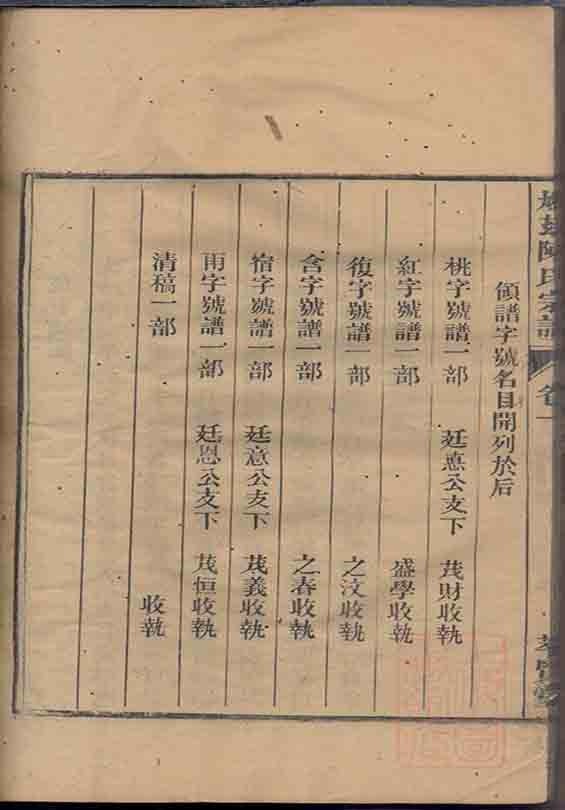 陳氏宗譜 卷一
領譜字號名目開列於后
桃字號譜一部 廷惪公支下 茂財收執
紅字號譜一部 盛學收執
復字號譜一部 之汶收執
含字號譜一部 之春收執
宿字號譜一部 廷意公支下 茂義收執
雨字號譜一部 廷恩公支下 茂恒收執
清稿一部 收執